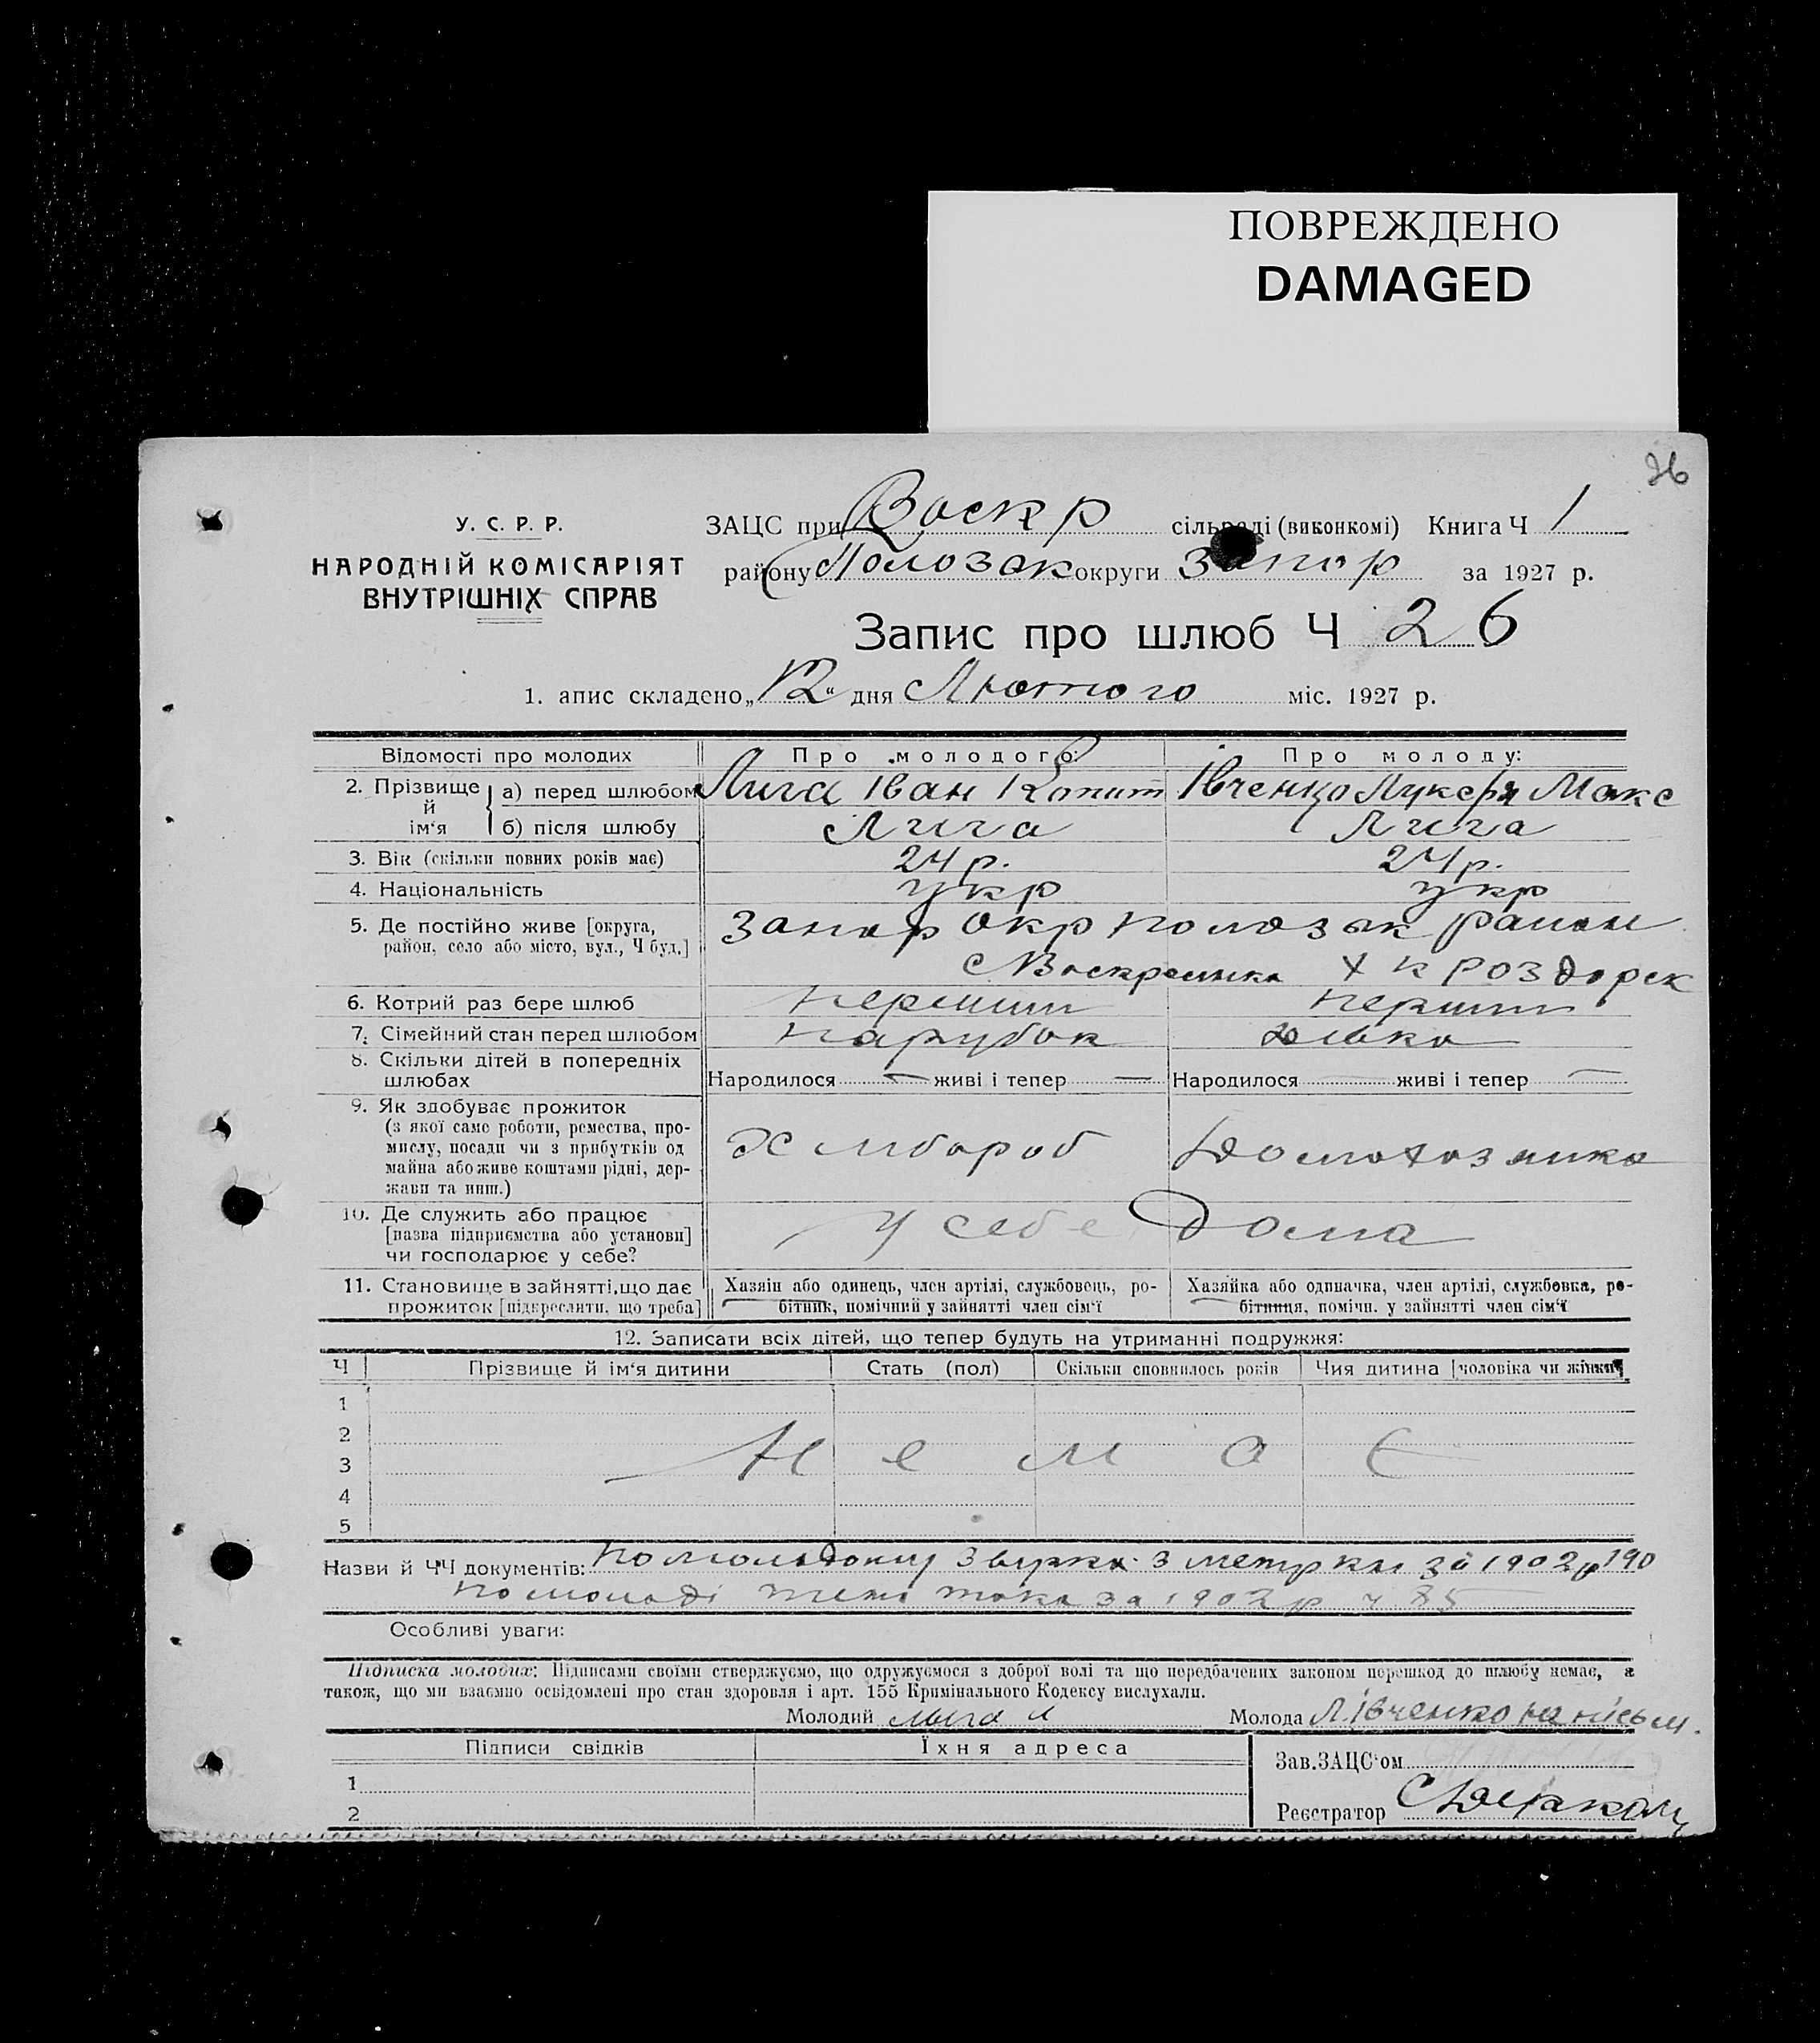 ПОВРЕЖДЕНО
DAMAGED
26
У. С. Р. Р.
НАРОДНІЙ КОМІСАРІЯТ
ВНУТРІШНІХ СПРАВ
ЗАЦС при Воскр сільраді (виконкомі) Книга Ч 1
району Полозак округи Запор за 1927 р.
Запис про шлюб Ч 26
1. апис складено „12“ дня Лютого міс. 1927 р.
Відомості про молодих Про молодого: Про молоду:
2. Прізвище й ім‘я а) перед шлюбом Лига Іван Капит Івченко Лукеря Макс
б) після шлюбу Лига Лига
3. Вік (скільки повних років має) 24 р. 24 р.
4. Національність укр укр
5. Де постійно живе [округа, Запор окр Полозак район
район, село або місто, вул., Ч буд.] с Воскресенка х к Роздорск
6. Котрий раз бере шлюб перший перший
7. Сімейний стан перед шлюбом парубок дівка
8. Скільки дітей в попередніх
шлюбах Народилося — живі і тепер — Народилося — живі і тепер —
9. Як здобуває прожиток
(з якої саме роботи, ремества, про-
мислу, посади чи з прибутків од
майна або живе коштами рідні, дер-
жави та инш.) Хлібороб Домохазяйка
10. Де служить або працює
[назва підприємства або установи]
чи господарює у себе? У себе дома
11. Становище в зайнятті, що дає Хазяїн або одинець, член артілі, службовець, ро- Хазяйка або одиначка, член артілі, службовка, ро-
прожиток [підкреслити, що треба] бітник, помічний у зайнятті член сім‘ї бітниця, помічн. у зайнятті член сім‘ї
12. Записати всіх дітей, що тепер будуть на утриманні подружжя:
Ч Прізвище й ім‘я дитини Стать (пол) Скільки сповнилось років Чия дитина [чоловіка чи жінки]
1
2
3 Немає
4
5
Назви й ЧЧ документів: По молодому звирка з метрики за 1902 р 190
по молоді теж така за 1902 р ч 85
Особливі уваги:
Підписка молодих: Підписами своїми стверджуємо, що одружуємося з доброї волі та що передбачених законом перешкод до шлюбу немає, а
також, що ми взаємно освідомлені про стан здоровля і арт. 155 Кримінального Кодексу вислухали.
Молодий Лига И Молода Л. Івченко не письм.
Підписи свідків Їхня адреса Зав. ЗАЦС‘ом
1
2 Реєстратор